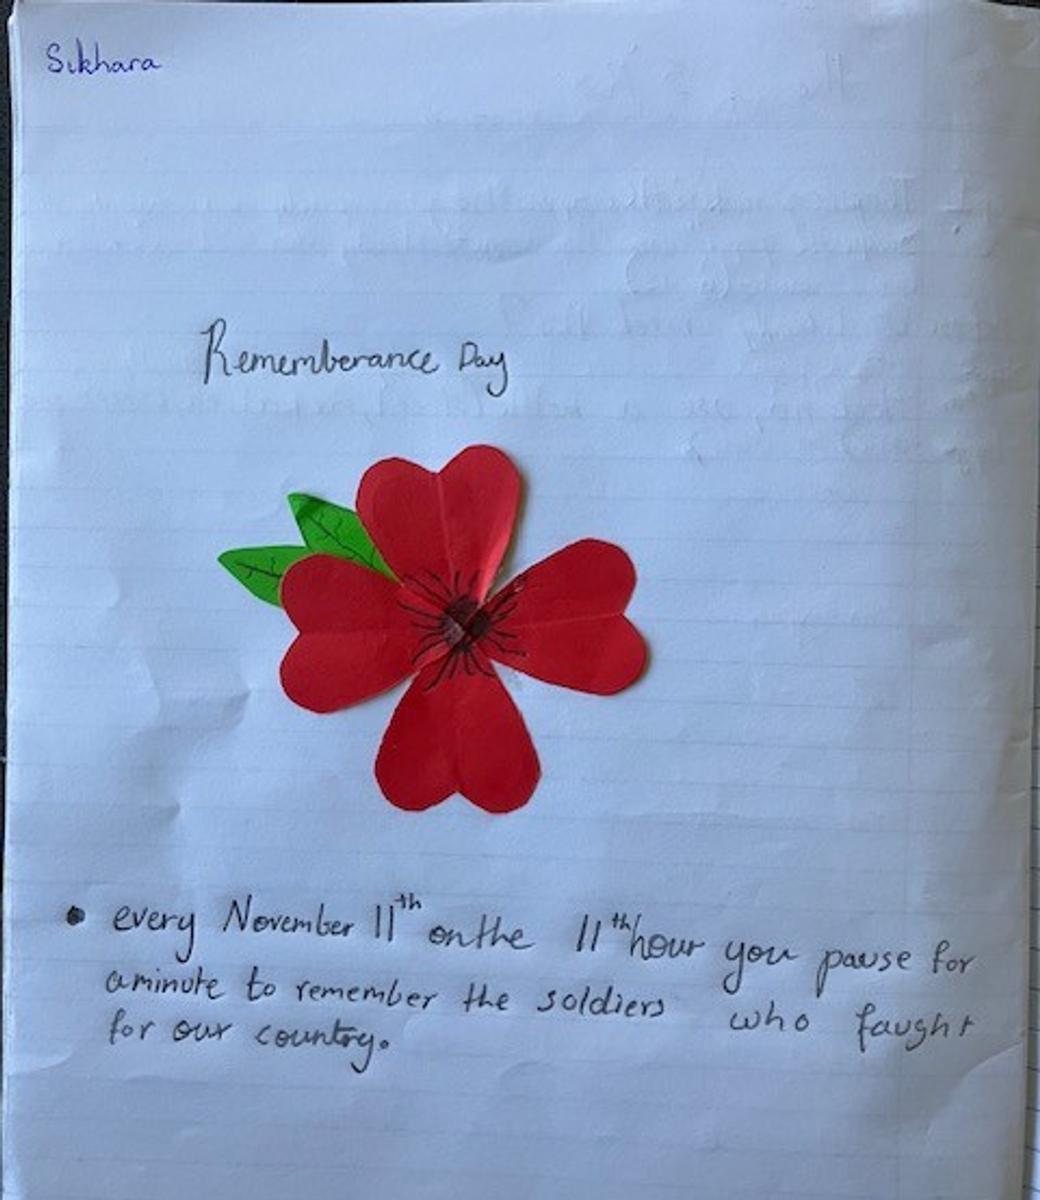 Sikhara
Rememberance Day
• every November 11th on the 11th hour you pause for
a minute to remember the soldiers who faught
for our country.